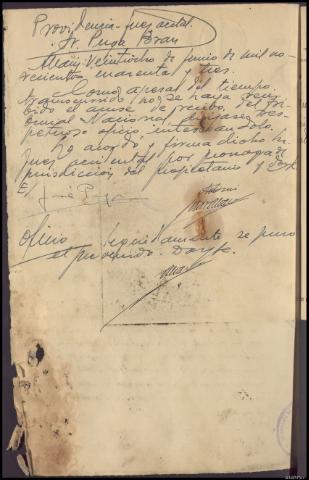 Providencia Juez acctal.
Sr. Puga
veintiocho de junio de mil no-
vecientos cuarenta y tres.
Como a pesar del tiempo
transcurrido no se haya reci-
bido el acuse de recibo, del Tri-
bunal Nacional, dirijase res-
petuoso oficio, interesandolo.
Lo acordó y firma dicho Sr.
Juez accidental por prorroga de
jurisdiccion del propietario y doy fe
José Puga
Oficio Seguidamente se puso
el prevenido. Doy fe.